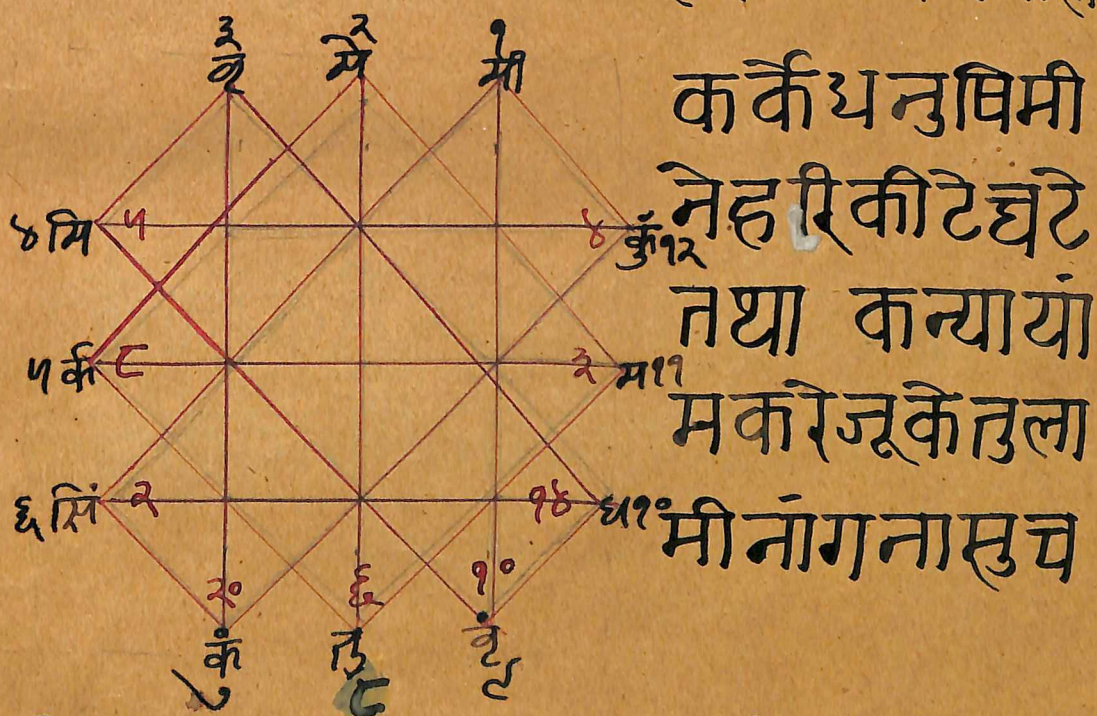 ३ २ १
वृ मे मी
४ मि ५ ४ कुं १२
५ र्क ८ ३ म ११
६ सिं २ १४ ध १०
२० ६ १०
कं तु वृ
७ ८ ९
कर्कै धनुषि मी
ने हरि कीटे घटे
तथा कन्यायां
मकरे जूके तुला
मीनांगनासु च